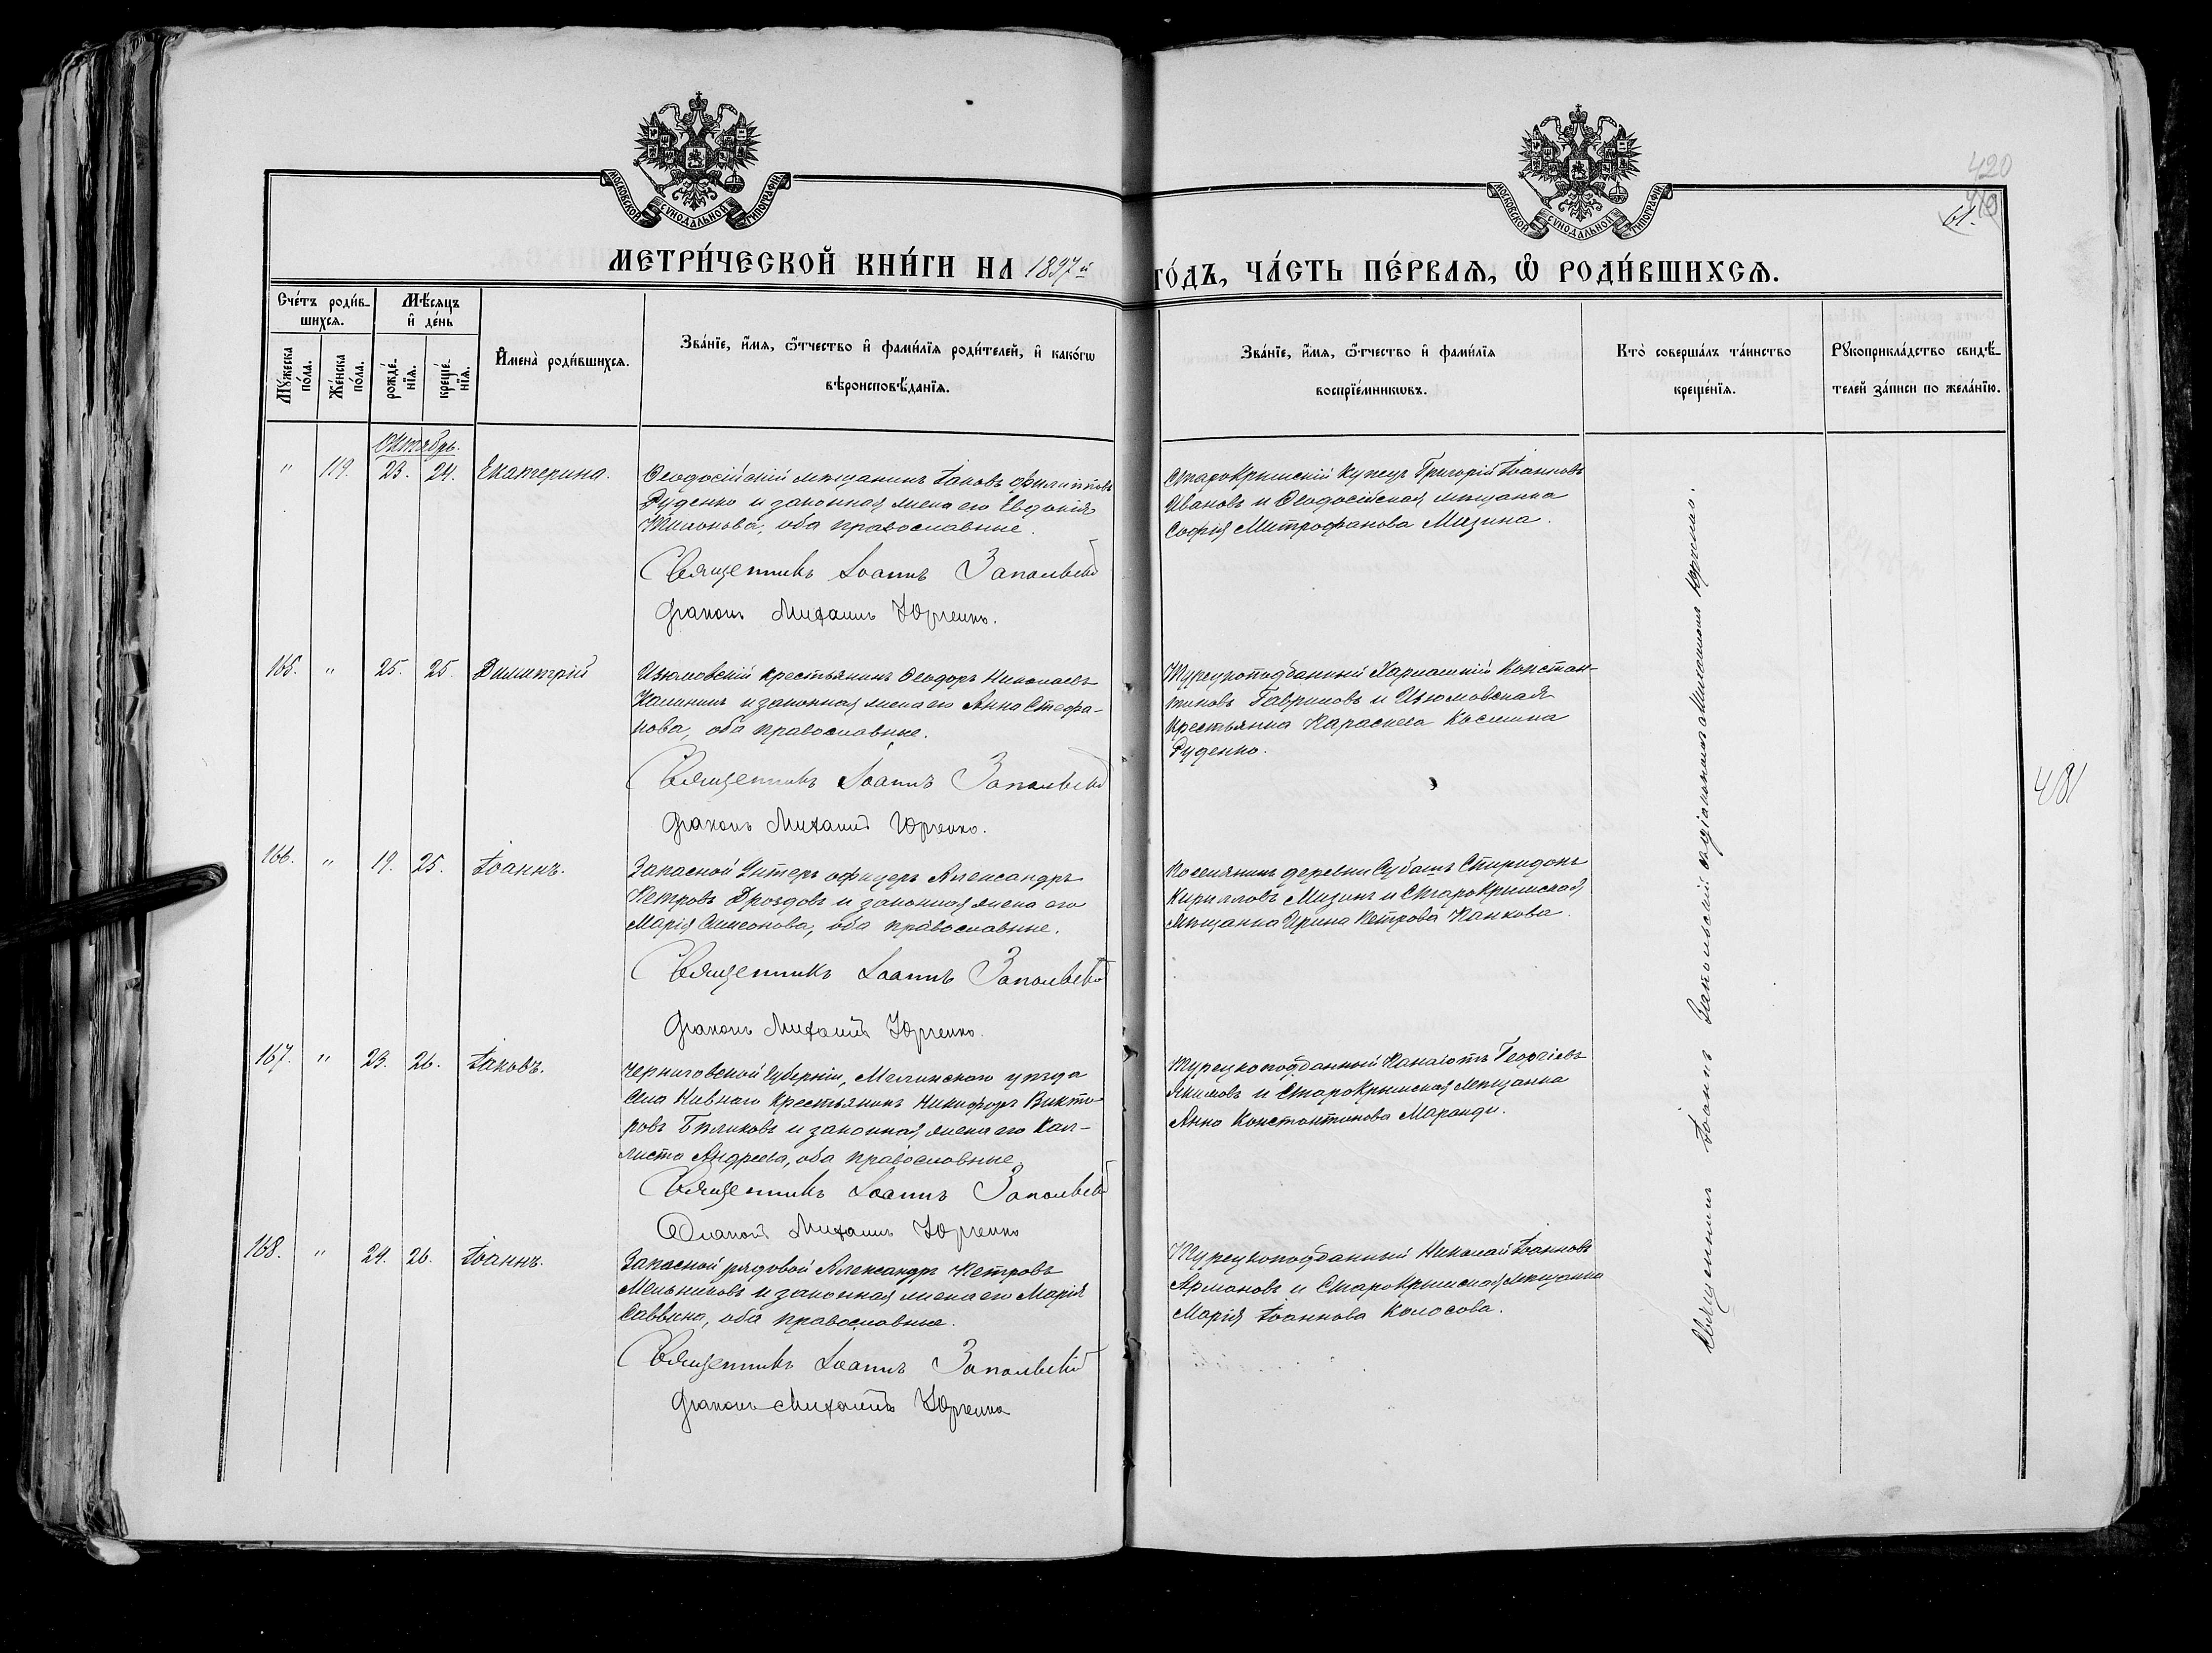 МОСКОВСКОЙ СѴНОДАЛЬНОЙ ТИПОГРАФІИ
МОСКОВСКОЙ СѴНОДАЛЬНОЙ ТИПОГРАФІИ
420
61.
МЕТРИ́ЧЕСКОЙ КНИ́ГИ НА 1897й ГО́ДЪ, ЧА́СТЬ ПЕ́РВАѦ, Ѡ РОДИ́ВШИХСѦ.
Сче́тъ роди́в-
шихсѧ.
Мѣ́сѧцъ
и де́нь
Мꙋ́жеска
по́ла.
Же́нска
по́ла.
рожде́-
нїѧ.
креще́-
нїѧ.
И҆мена̀ роди́вшихсѧ.
Зва́нїе, и҆́мѧ, ѻ҆́тчество и҆ фами́лїѧ роди́телей, и҆ како́гѡ
вѣроисповѣ́данїѧ.
Зва́нїе, и҆́мѧ, ѻ҆́тчество и҆ фами́лїѧ
воспрїе́мникѡвъ.
Кто̀ соверша́лъ та́инство
креще́нїѧ.
Рꙋкоприкла́дство свидѣ́-
телей за́писи по жела́нїю.
Октябрь.
" 119. 23. 24. Екатерина.
Ѳеодосійскій мѣщанинъ Іаковъ Филипповъ
Руденко и законная жена его Евдокія
оба православные.
Священникъ Іоаннъ Запольскій
Діаконъ Михаилъ Юрченко.
Старокрымскій купецъ Григорій Іоанновъ
Ивановъ и Ѳеодосійская мѣщанка
Софія Митрофанова Мизина.
165. " 25. 25. Димитрій
Изюмовскій крестьянинъ Ѳеодоръ Николаевъ
Калинин и законная жена его Анна Стефа-
нова, оба православные.
Священникъ Іоаннъ Запольскій
Діаконъ Михаилъ Юрченко.
Турецкоподданный Харлампій Констан-
тиновъ Гавриловъ и Изюмовская
крестьянка Параскева Космина
Руденко.
166. " 19. 25. Іоаннъ.
Запасной Унтеръ офицеръ Александръ
Петровъ Дроздовъ и законная жена его
Марія Симеонова, оба православные.
Священникъ Іоаннъ Запольскій
Діаконъ Михаилъ Юрченко.
Поселянинъ деревни Субашъ Спиридонъ
Кирилловъ Мизинъ и Старокрымская
мѣщанка Ирина Петрова Панкова.
167. " 23. 26. Іаковъ.
Черниговской губерніи, Мглинскаго уѣзда
села Нивнаго крестьянинъ Никифоръ Викто-
ровъ Бѣликовъ и законная жена его Кал-
листа Андреева, оба православные.
Священникъ Іоаннъ Запольскій
Діаконъ Михаилъ Юрченко
Турецкоподданный Панаіотъ Георгіевъ
Якимовъ и Старокрымская мѣщанка
Анна Константинова Маранди.
168. " 24. 26. Іоаннъ.
Запасной рядовой Александръ Петровъ
Мельниковъ и законная жена его Марія
Саввина, оба православные.
Священникъ Іоаннъ Запольскій
Діаконъ Михаилъ Юрченко
Турецкоподданный Николай Іоанновъ
Армановъ и Старокрымская мѣщанка
Марія Іоаннова Колосова.
Священникъ Іоаннъ Запольскій съ діакономъ Михаиломъ Юрченко.
481